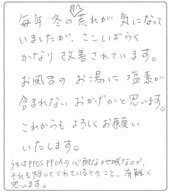 毎年 冬の肌荒れが 気になって
いましたが、ここしばらく
かなり 改善されています。
お風呂の お湯に 塩素が
含まれない おかげかと思います。
これからも よろしくお願い
いたします。
うちはPFOS PFOAの心配な地域なので、
それも除いてくれているとのこと、有難く
思います。